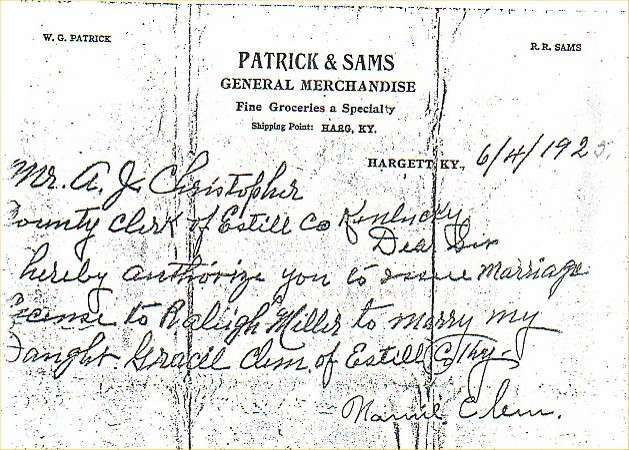 W. G. PATRICK
R. R. SAMS
PATRICK & SAMS
GENERAL MERCHANDISE
Fine Groceries a Specialty
Shipping Point: HARG, KY.
HARGETT KY., 6/4/1925.
Mr. A. J. Christopher
County Clerk of Estill Co Kentucky
Dear Sir
hereby authorize you to issue Marriage
License to Raleigh Miller to marry my
Daught Gracie Clem of Estill Co Ky
Nannie Clem.